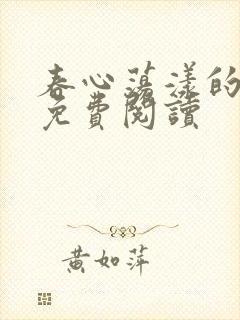 春心蕩漾的
免費閱讀
黃如萍